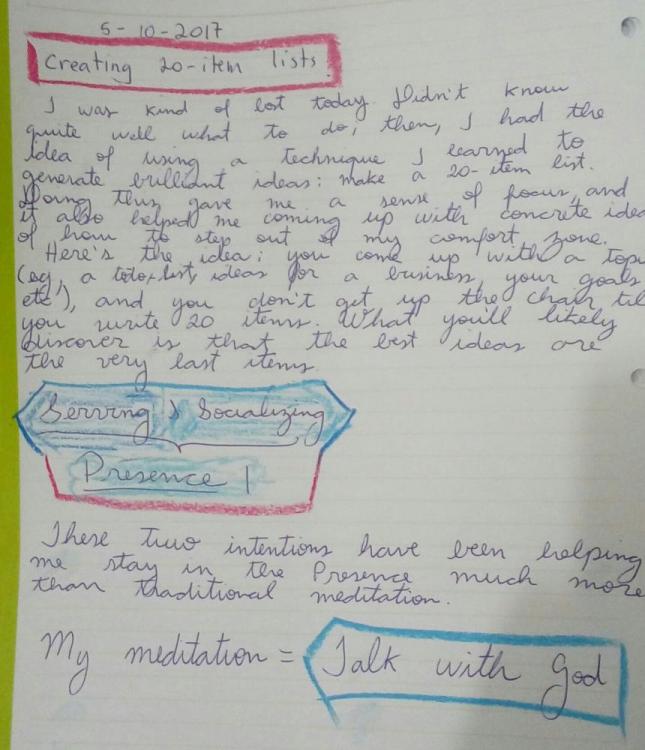 5-10-2017
Creating 20-item lists
I was kind of lost today. Didn't know
quite well what to do, then, I had the
idea of using a technique I learned to
generate brilliant ideas: make a 20-item list.
Doing this gave me a sense of focus, and
it also helped me coming up with concrete idea
of how to step out of my comfort zone.
Here's the idea: you come up with a topi
(eg, a list, ideas for a business, your goals
etc), and you don't get up the chair til
you write 20 items. What you'll likely
discover is that the best ideas are
the very last items.
Serving > Socializing
Presence
These two intentions have been helping
me stay in the Presence much more
than traditional meditation.
My meditation = Talk with God